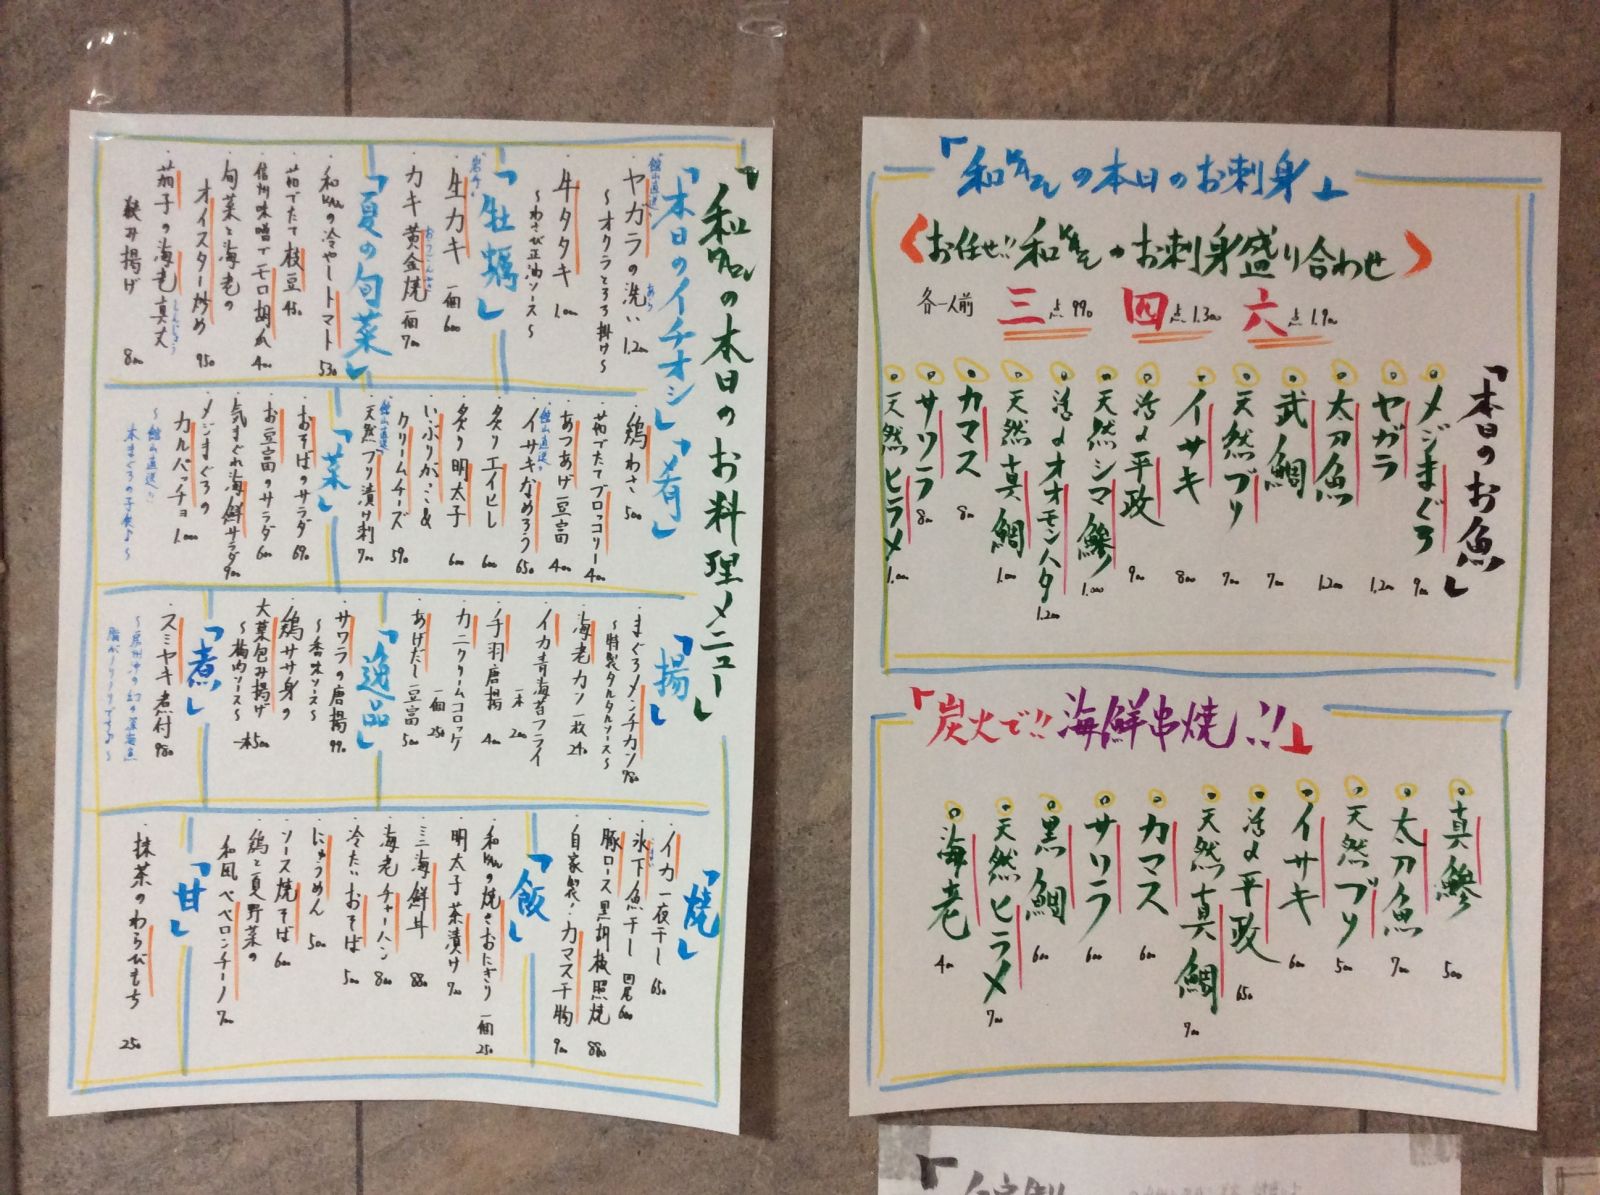 の本日のお料理メニュー」
「本日のイチオシ」
館山直送
・ヤガラの洗い 1.200
〜オクラとろろ掛け〜
・牛タタキ 1.000
〜わさび正油ソース〜
「牡蠣」
・生カキ 一個 600
・カキ黄金焼 一個 700
「夏の旬菜」
の冷やしトマト 530
・茹でたて枝豆 450
・信州味噌でモロ胡瓜 400
・旬菜と海老の
オイスター炒め 950
・茄子の海老真丈
挟み揚げ 800
「肴」
・鶏わさ 500
・茹でたてブロッコリー 400
・あつあげ豆富 400
館山直送
・イサキなめろう 650
・炙りエイヒレ 600
・炙り明太子 600
・いぶりがっこ&
クリームチーズ 590
館山直送
・天然ブリ漬け刺 700
「菜」
・おそばのサラダ 690
・お豆富のサラダ 600
・気まぐれ海鮮サラダ 900
・メジまぐろの
カルパッチョ 1.000
〜館山直送!!
本まぐろの子供♪〜
「揚」
・まぐろメンチカツ 780
〜特製タルタルソース〜
・海老カツ 一枚 240
・イカ青海苔フライ
一本 200
・手羽唐揚 400
・カニクリームコロッケ
一個 250
・あげだし豆富 500
「逸品」
・サワラの唐揚 990
〜香味ソース〜
・鶏ササ身の
大葉包み揚げ
〜梅肉ソース〜 一本 500
「煮」
・スミヤキ煮付 980
〜房州沖の幻の深海魚
脂がノリノリです♪〜
「焼」
・イカ一夜干し 650
・氷下魚干し 四尾 600
・豚ロース黒胡椒照焼 880
・自家製!カマス干物 900
「飯」
の焼きおにぎり 一個 250
・明太子茶漬け 700
・三海鮮丼 880
・海老チャーハン 800
・冷たいおそば 500
・にゅうめん 500
・ソース焼そば 600
・鶏と夏野菜の
和風ペペロンチーノ 700
「甘」
・抹茶のわらびもち 250
の本日のお刺身」
〈お任せ!!
のお刺身盛り合わせ〉
各一人前 三点 990 四点 1.300 六点 1.900
「本日のお魚」
メジまぐろ 900
ヤガラ 1.200
太刀魚 1.200
武鯛 700
天然ブリ 700
イサキ 800
活〆平政 900
天然シマ鯵 1.000
活〆オオモンハタ 1.200
天然真鯛 1.000
カマス 800
サワラ 800
天然ヒラメ 1.000
「炭火で!!海鮮串焼し!!」
真鯵 500
太刀魚 700
天然ブリ 500
イサキ 600
活〆平政 650
天然真鯛 700
カマス 600
サワラ 600
黒鯛 600
天然ヒラメ 700
海老 400